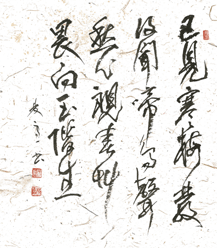 已見寒梅發
復聞啼鳥聲
愁心視春草
畏向玉階生